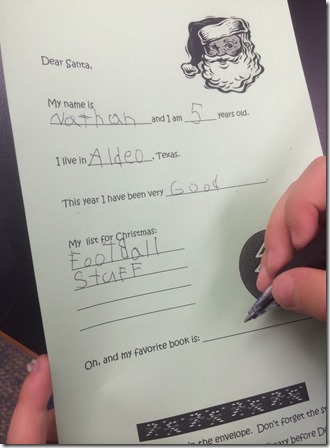 Dear Santa,
My name is
Nathan and I am 5 years old.
I live in Aldeo, Texas.
This year I have been very Good.
My list for Christmas:
Football
Stuff
Oh, and my favorite book is:
in the envelope. Don't forget the st
ary before De